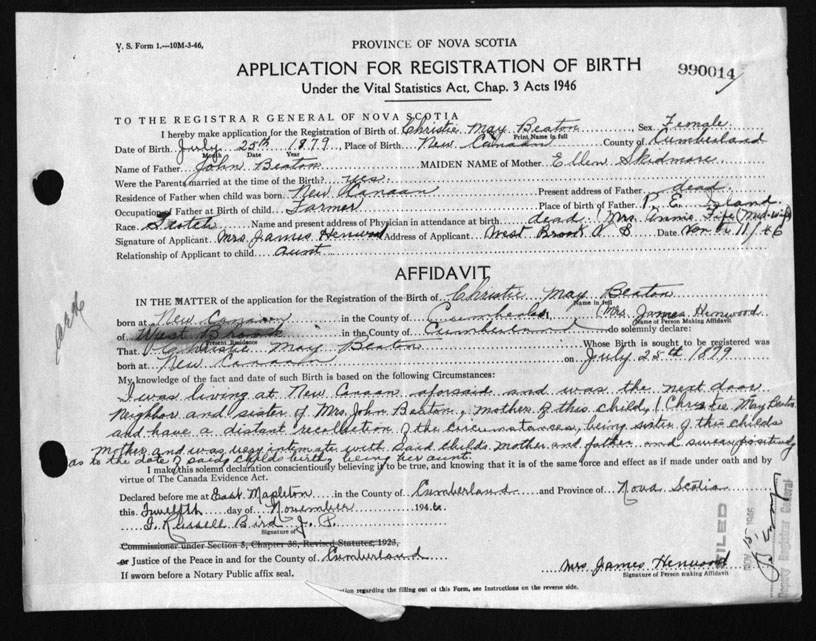 V. S. Form 1.—10M-3-46,
PROVINCE OF NOVA SCOTIA
APPLICATION FOR REGISTRATION OF BIRTH
990014
Under the Vital Statistics Act, Chap. 3 Acts 1946
TO THE REGISTRAR GENERAL OF NOVA SCOTIA
I hereby make application for the Registration of Birth of Christie May Beaton Sex Female
Print Name in full
Date of Birth July 25th 1879 Place of Birth New Canaan County of Cumberland
Month Date Year
Name of Father John Beaton MAIDEN NAME of Mother Ellen Skidmore
Were the Parents married at the time of the Birth? yes
Residence of Father when child was born New Canaan Present address of Father dead
Occupation of Father at Birth of child Farmer Place of birth of Father P. E. Island
Race Scotch Name and present address of Physician in attendance at birth dead (Mrs Annie Fife (Mid-wife)
Signature of Applicant Mrs James Henwood Address of Applicant West Brook N S Date Nov 11/46
Relationship of Applicant to child aunt
AFFIDAVIT
IN THE MATTER of the application for the Registration of the Birth of Christie May Beaton
Name in full
born at New Canaan in the County of Cumberland (Mrs James Henwood
Name of Person Making Affidavit
of West Brook in the County of Cumberland do solemnly declare:
Present Residence
That Christie May Beaton Whose Birth is sought to be registered was
born at New Canaan on July 25th 1879
My knowledge of the fact and date of such Birth is based on the following Circumstances:
I was living at New Canaan aforsaid and was the next door
Neighbor and sister of Mrs John Beaton, mother of this child, (Christie May Beaton
and have a distant recollection of the circumstances, being sister of this childs
Mother and was very intimate with said childs mother and father and swear positively
as to the date of said child birth, being her aunt
I make this solemn declaration conscientiously believing it to be true, and knowing that it is of the same force and effect as if made under oath and by
virtue of The Canada Evidence Act.
Declared before me at East Mapleton in the County of Cumberland and Province of Nova Scotia
this Twelfth day of November 1946
J. Russell Bird J. P.
Signature of
Commissioner under Section 5, Chapter 36, Revised Statutes, 1923,
or Justice of the Peace in and for the County of Cumberland
If sworn before a Notary Public affix seal.
Mrs James Henwood
Signature of Person making Affidavit
FILED
NOV 15 1946
Deputy Registrar General
regarding the filling out of this Form, see Instructions on the reverse side.